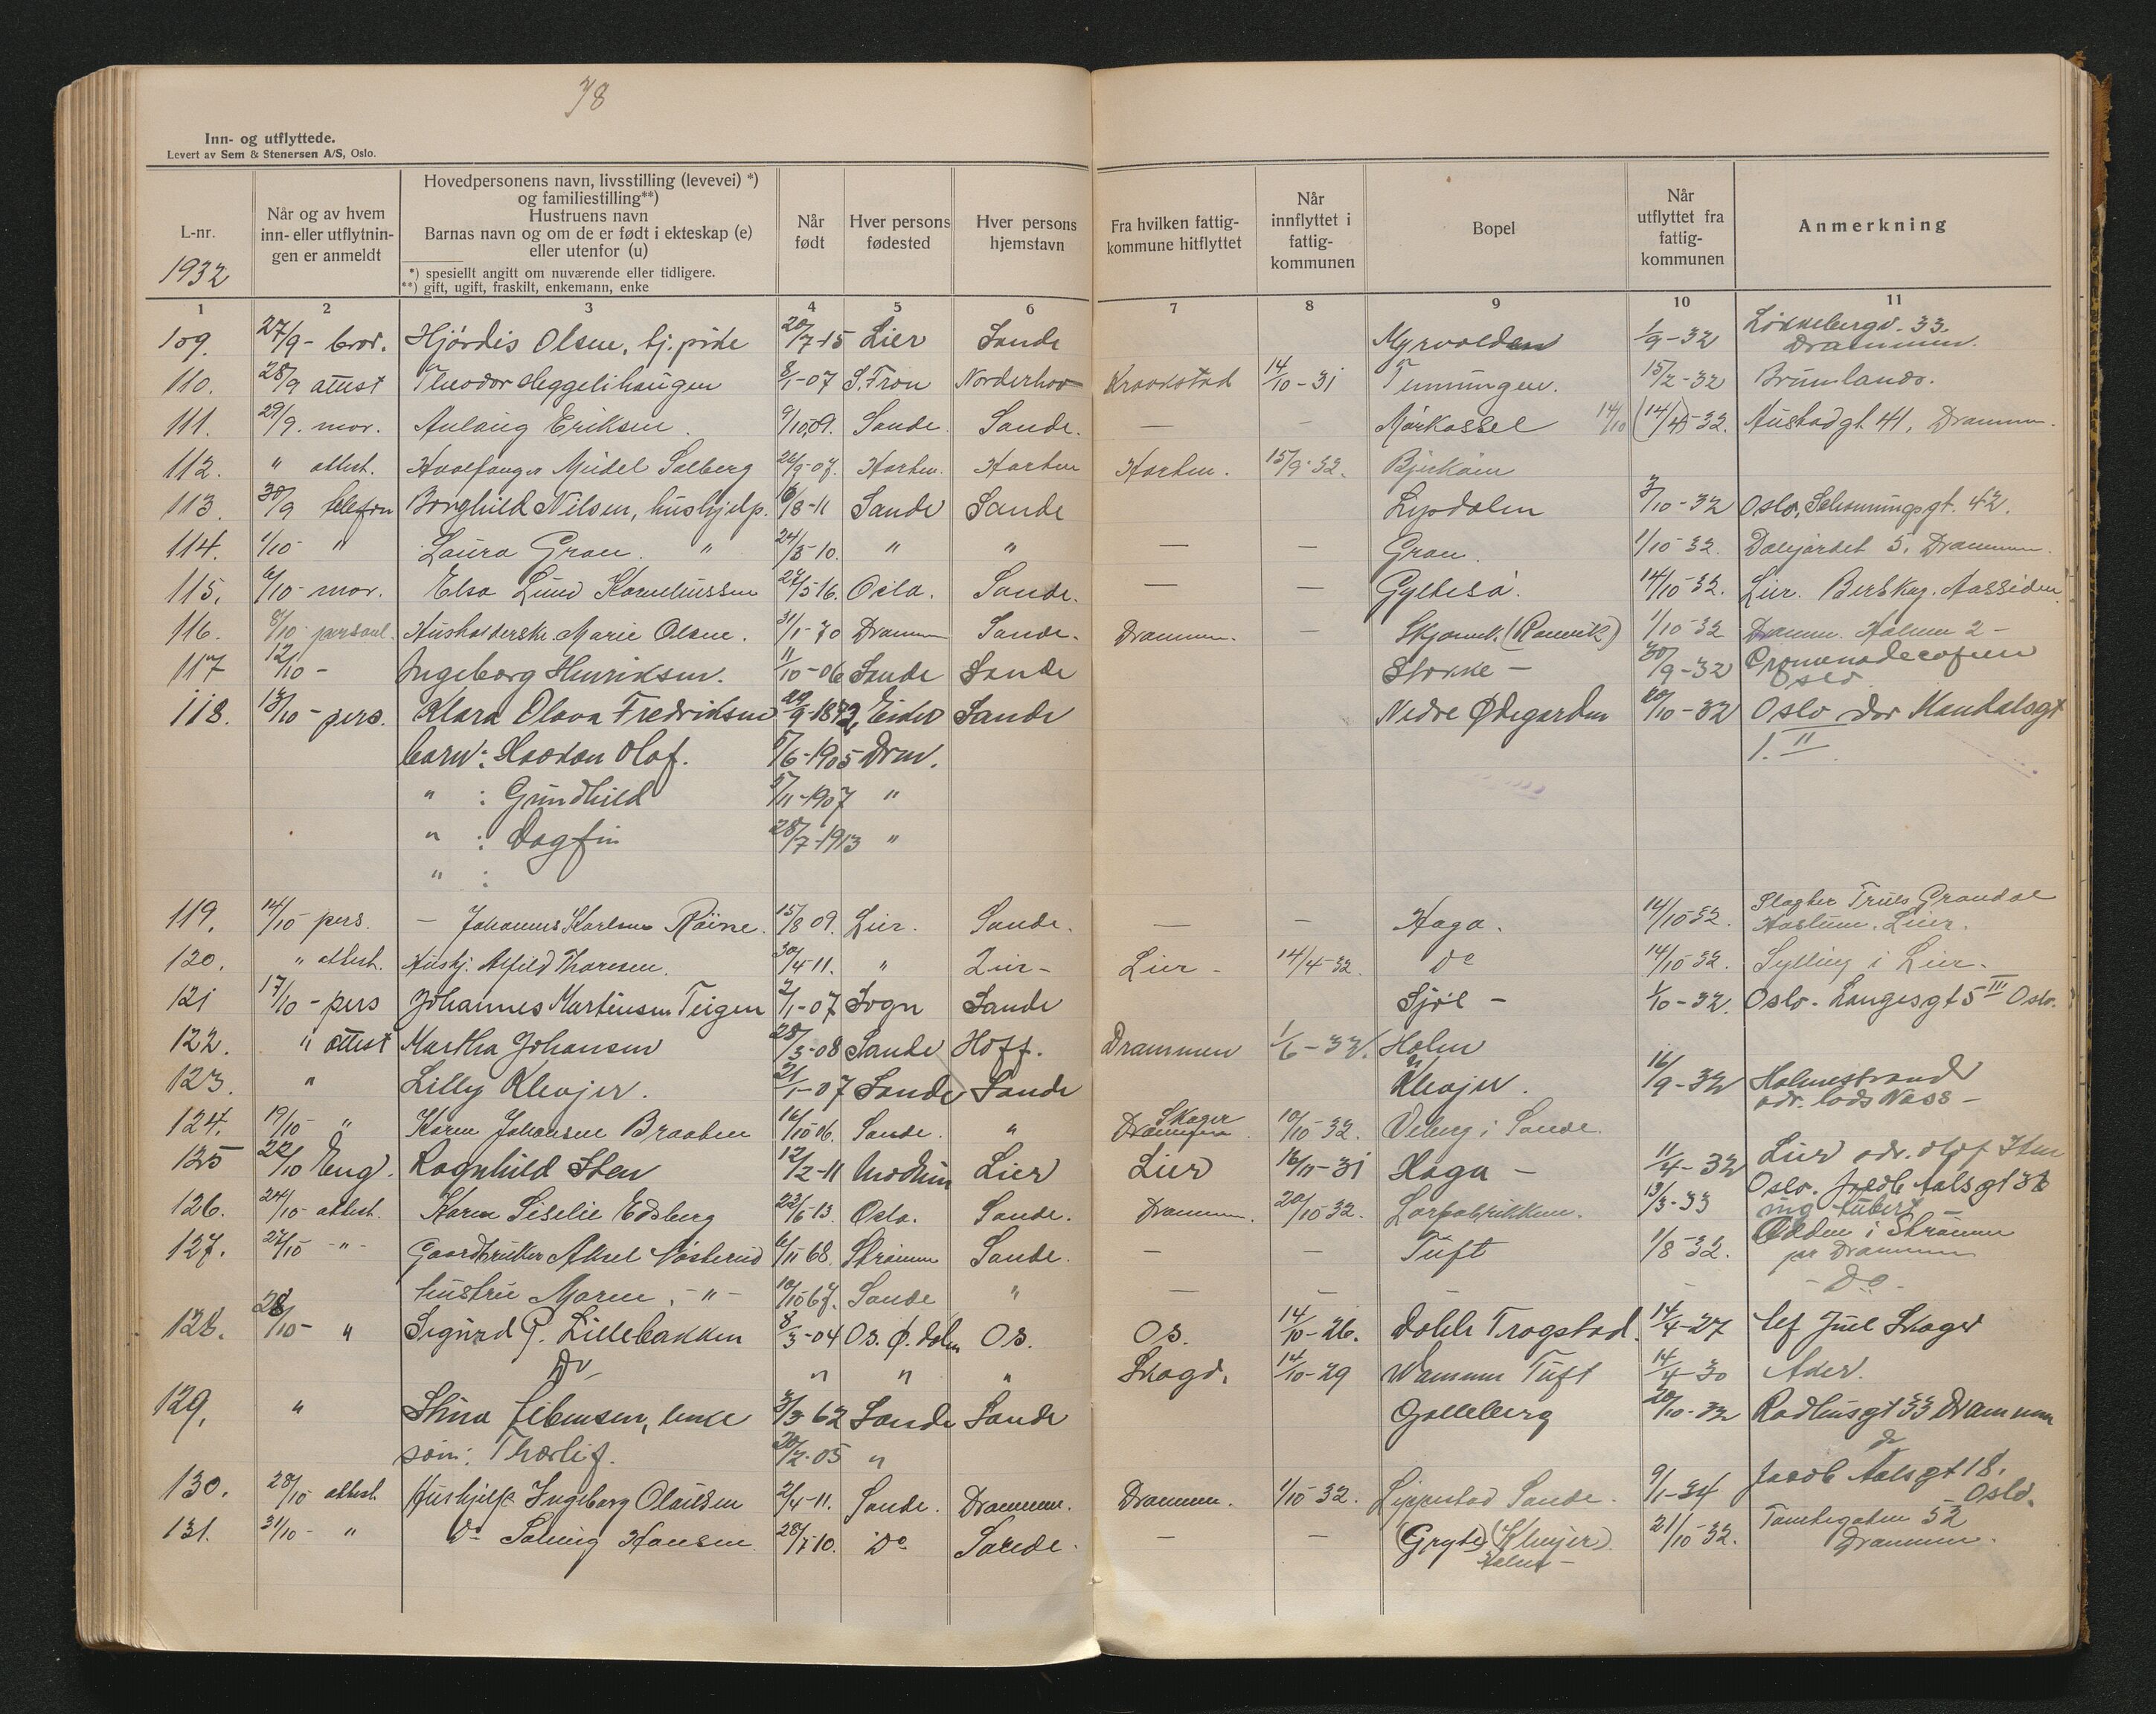 78
Inn- og utflyttede.
Levert av Sem & Stenersen A/S, Oslo.
L-nr.
1932
Når og av hvem
inn- eller utflytnin-
gen er anmeldt
Hovedpersonens navn, livsstilling (levevei) *)
og familiestilling**)
Hustruens navn
Barnas navn og om de er født i ekteskap (e)
eller utenfor (u)
*) spesielt angitt om nuværende eller tidligere.
**) gift, ugift, fraskilt, enkemann, enke
Når
født
Hver persons
fødested
Hver persons
hjemstavn
Fra hvilken fattig-
kommune hitflyttet
Når
innflyttet i
fattig-
kommunen
Bopel
Når
utflyttet fra
fattig-
kommunen
Anmerkning
1 2 3 4 5 6 7 8 9 10 11
109. 27/9 - bror. Hjördis Olsen, tj. pike 20/7-15 Lier Sande Myrvolden 1/9-32 Lökkebergv. 33. Drammen.
110. 28/9 attest Theodor Heggelihaugen 8/1-07 S. Fron Norderhov Kraakstad 14/10-31 15/2-32
111. 29/9. mor. Aslaug Eriksen. 9/10 09. Sande. Sande. — – Mörkassel 14/10 (14/4)-32. Austadgt. 41, Drammen.
112. " attest. Hvalfanger Solberg 26/9-07. Horten. Horten Horten. 15/9-32. Bjerkåm
113. 30/9 telefon Borghild Nilsen, hushjelp. 6/8-11 Sande Sande 3/10-32 Oslo, Schouningsgt. 42.
114. 1/10 - " Laura Gran. " 24/3-10. " " — – Gran. 1/10-32. 5, Drammen.
115. 6/10 - mor. Elsa Lund Korneliussen 27/5 16. Oslo. Sande. — – 14/10-32. Lier. Aassiden
116. 8/10 personl. Husholderske Marie Olsen. 31/1-70 Drammen Sande. Drammen. – (Ranvik) 1/10-32 Dramm. Holmen 2 -
117 12/10 - Ingeborg Henriksen. 11/10-06 Sande Sande Stokke - 30/9-32 Promenadecafeen Oslo
118. 13/10 - pers. Klara Olava Fredriksen 29/9-1872, Eiker Sande Nedre Ødegarden 20/10-32 Oslo Mandalsgt
barn: Haakon Olaf. 5/6-1905 Drm. 1. II
" : Gundhild 5/11-1907 "
" : Dagfin 28/7-1913 "
" :
119. 14/10 pers. — Johannes Karlsen Röine. 15/8 09. Lier. Sande. — – Haga. 14/10 32. Slagter Truls Grandal Haslum. Lier.
120. " attest. Hushj. Alfild Thoresen. 30/4-11. " Lier - Lier - 14/4-32. Do 14/10 32. Sylling i Lier.
121 17/10 - pers Johannes Martinsen Teigen 2/1-07 Sogn Sande Sjöl - 1/10-32. Oslo. Langesgt 5 III Oslo.
122. " attest Martha Johansen 28/3-08 Sande Hoff. Drammen 1/6-32. Holm
123. " Lilly Klevjer. 21/1-07 Sande Sande Klevjer. 16/9-32 Holmestrand adr. lods Næss -
124. 19/10 - " Karen Johansen Braaten 16/10 06. Sande. " Skoger Drammen. 10/10-32. Veberg i Sande.
125 22/10 Eng. Ragnhild Sten 12/2-11 Modum Lier Lier 16/11-31 Haga - 11/4-32 Lier adr. Olaf Sten
126. 24/10 - attest. Karen Siselie Edsberg 22/6-13. Oslo. Sande. Drammen. 20/10 32. 13/3-33 Oslo. Jacob Aalsgt 38
127. 27/10 - " - Gaardbruker Aksel 6/11 68. Strömm Sande. — – Tuft 1/8-32. i Strömm pr Drammen
hustru Maren. - " - 10/10 67. Sande " — – – - Do -
128. 28/10 - " Sigurd P. Lillebakken 8/3-04 Os. Ø. dalen Os. Os. 14/10-26. Döhlr Trogstad. 14/4-27 Juel Skoger
Do " " " Skogr. 14/10-29 Tuft 14/4-30 Aker.
129. " Stina Jebensen, enke 3/3 62 Sande Sande Golleberg 20/10-32 Radhusgt 33 Drammen
sön: Thorleif. 20/2-05 " do
130. 28/10 attest Hushjelp Ingeborg Olaussen 2/4-11. Sande. Drammen. Drammen. 1/10-32. Lippestad Sande. 9/1-34 Jacob Aalsgt 18. Oslo.
131. 31/10 - " Do Solveig Hansen 28/7 10. Do Sande. — – (Gryte) (Klevjer) 21/10-32. Drammen.